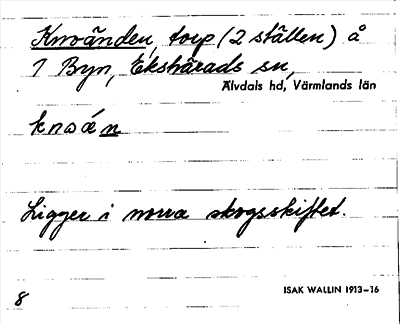 Knoänden, torp (2 ställen) å
7 Byn, Ekshärads sn,
Älvdals hd, Värmlands län
knoän
Ligger i norra skogsskiftet.
8
ISAK WALLIN 1913–16